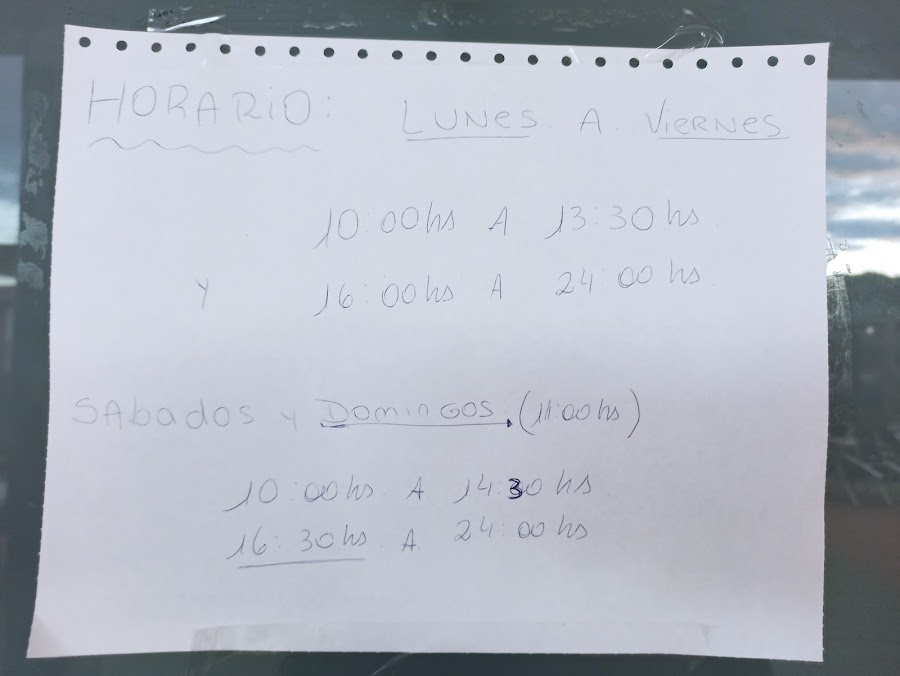 HORARIO: LUNES A VIERNES
10:00hs A 13:30hs
Y 16:00hs A 24:00hs
SAbados y DominGOS. (11:00hs)
10:00hs A 14:30hs
16:30hs A. 24:00hs